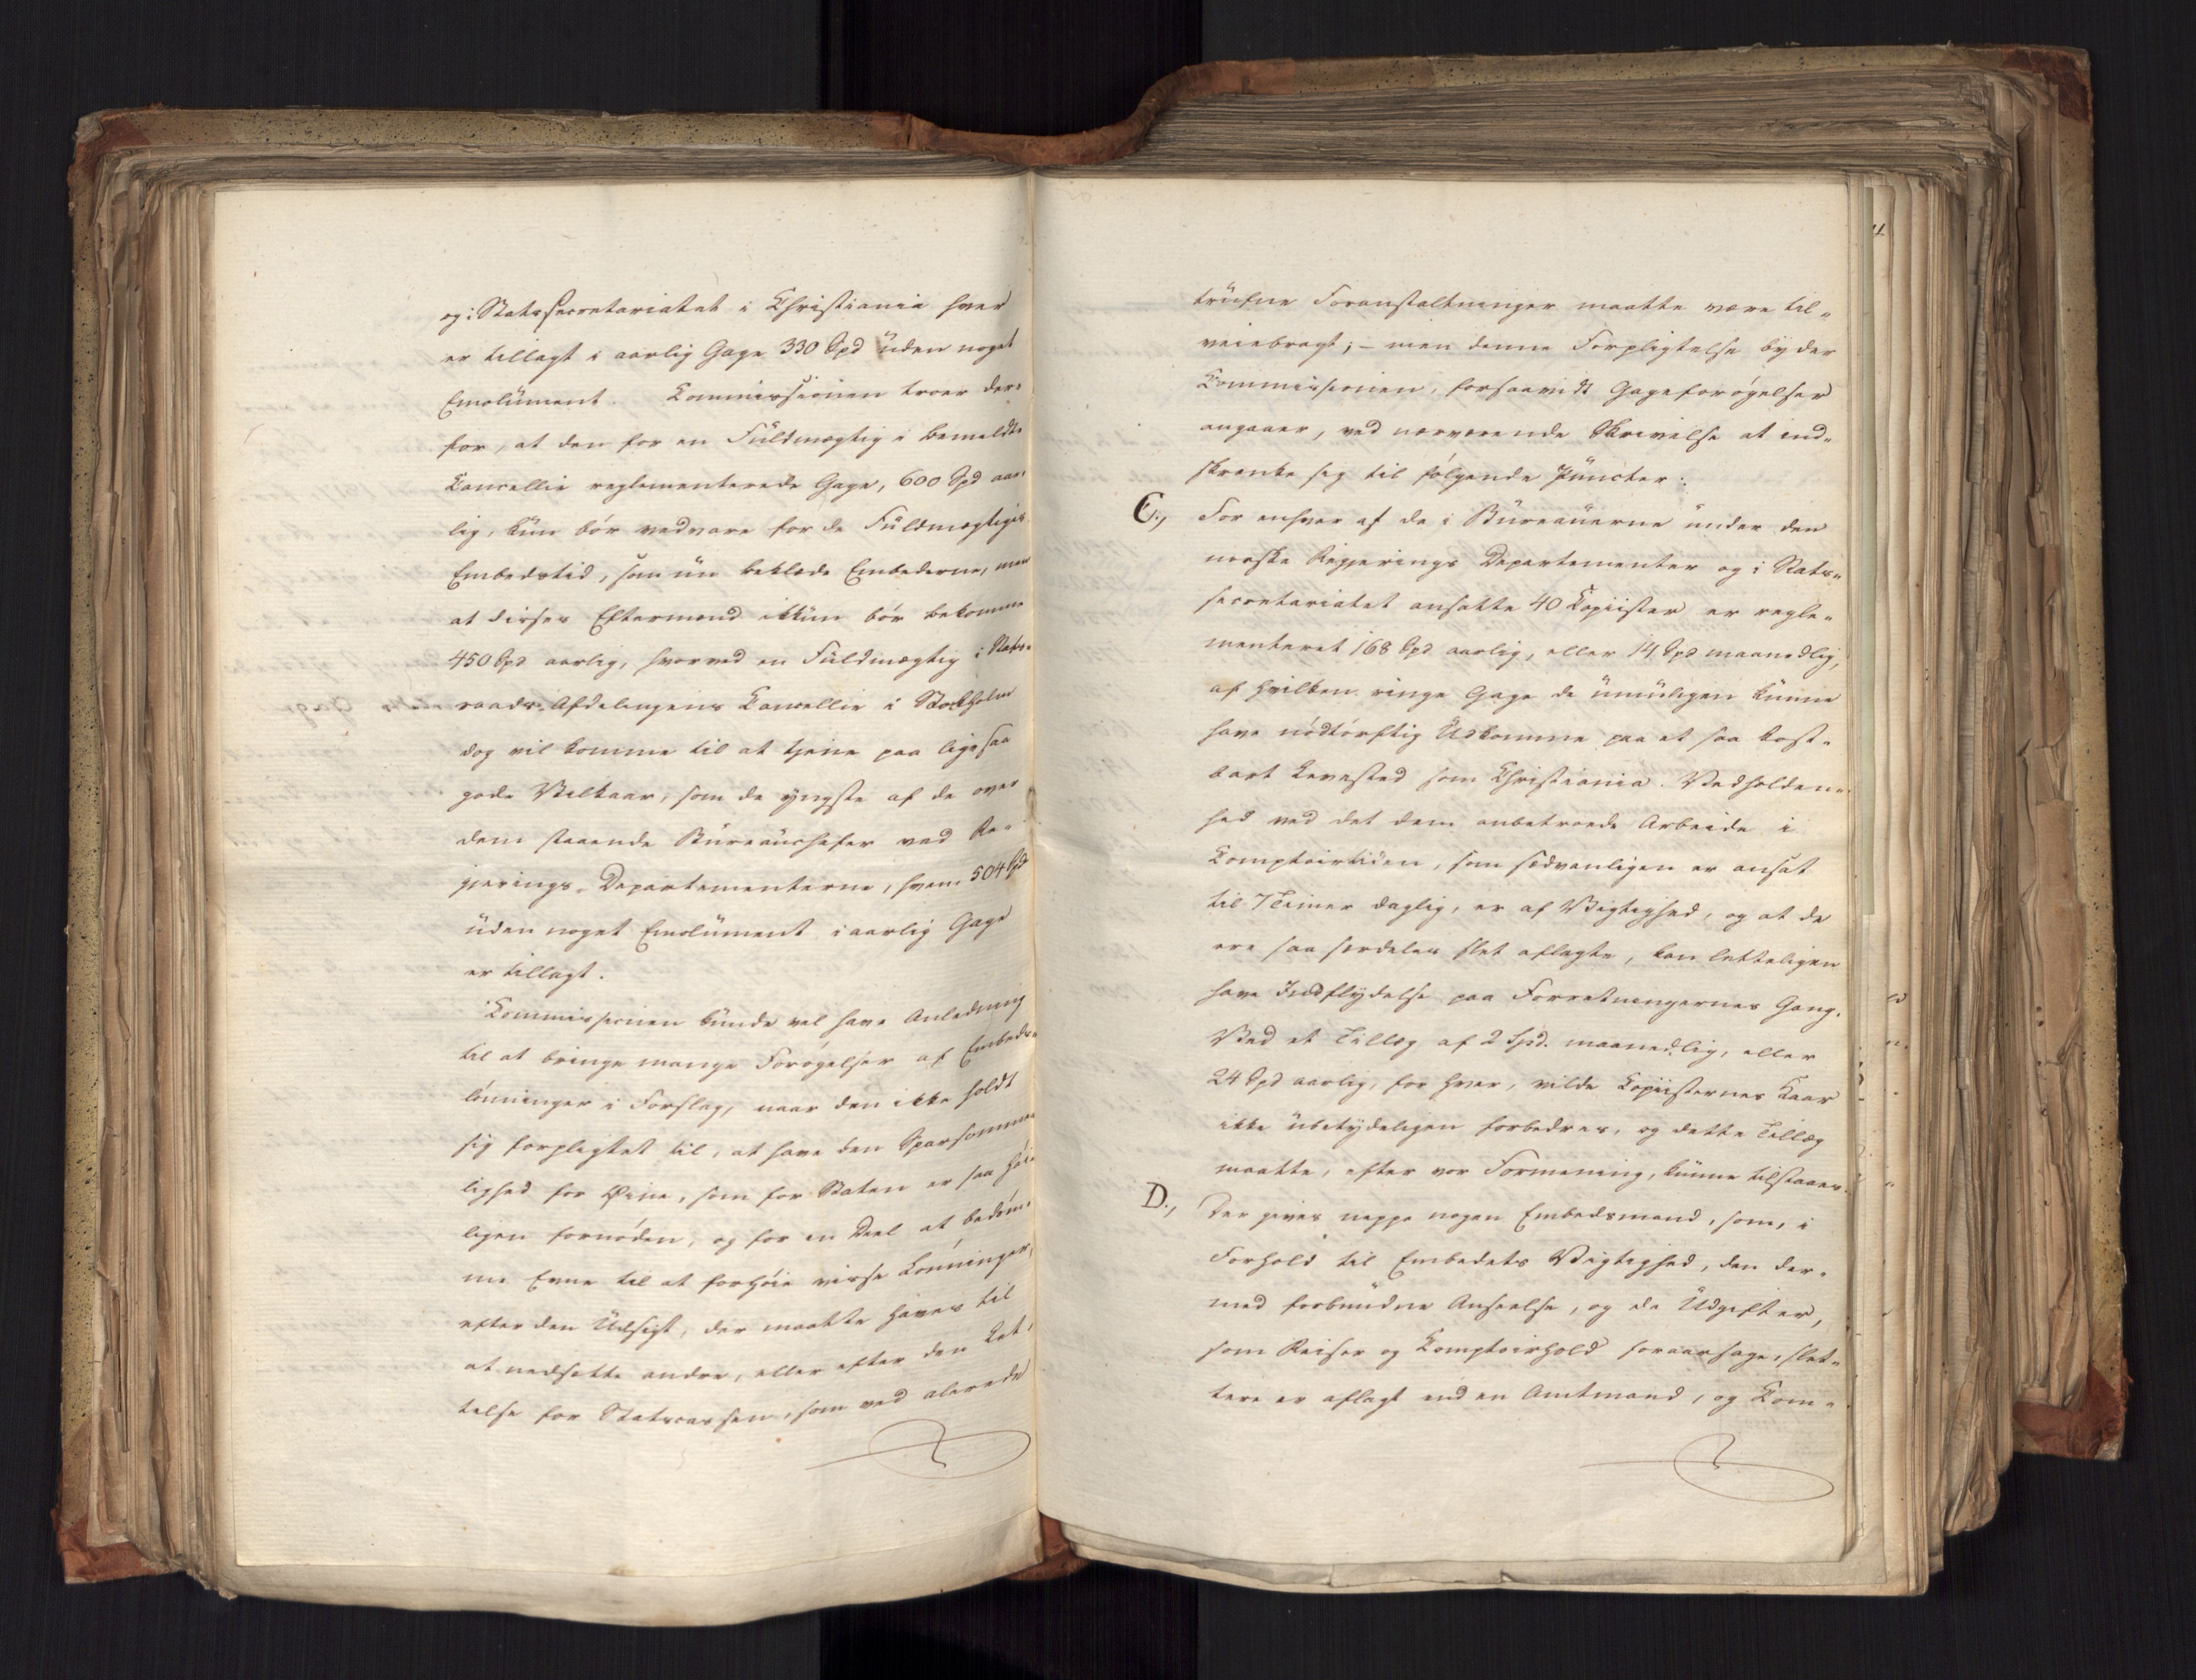 og i Statssecretariatet i Christiania hver
er tillagt i aarlig Gage 330 Spd uden noget
Emolument. Commissionen troer der-
for, at den for en Fuldmægtig i bemeldte
Cancellie reglementerede Gage, 600 Spd aar-
lig, kun bör vedvare for de Fuldmægtiges
Embedstid, som nu beklæde Embederne, men
at disses Eftermænd ikkun bör bekomme
450 Spd aarlig, hvorved en Fuldmægtig i Stats-
raads-Afdelingens Cancellie i Stockholm
dog vil komme til at tjene paa ligesaa
gode Vilkaar, som de yngste af de over
dem staaende Bureauchefer ved Re-
gjerings-Departementerne, hvem 504 Spd
uden noget Emolument i aarlig Gage
er tillagt.
Commissionen kunde vel have Anledning
til at bringe mange Forögelser af Embeds-
lönninger i Forslag, naar den ikke holdt
sig forpligtet til, at have den Sparsomme-
lighed for Øine, som for Staten er saa höi-
ligen fornöden, og for en Deel at bedöm-
me Evne til at forhöie visse Lönninger,
efter den Udsigt, der maatte haves til
at nedsætte andre, eller efter den Let-
telse for Statscassen, som ved alerede
trufne Foranstaltninger maatte være til-
veiebragt; – men denne Forpligtelse byder
Commissionen, forsaavidt Gageforögelser
angaaer, ved nærværende Skrivelse at ind-
skrænke sig til fölgende Puncter:
C., For enhver af de i Bureauerne under den
norske Regjerings Departementer og i Stats-
secretariatet ansatte 40 Copiister er regle-
menteret 168 Spd aarlig, eller 14 Spd maanedlig,
af hvilken ringe Gage de umuligen kunne
have nödtörftig Udkomme paa et saa kost-
bart Levested som Christiania. Vedholden-
hed ved det dem anbetroede Arbeide i
Comptoirtiden, som sædvanligen er ansat
til 7 Timer daglig, er af Vigtighed, og at de
ere saa særdeles slet aflagte, kan letteligen
have Indflydelse paa Forretningernes Gang.
Ved et Tillæg af 2 Spd. maanedlig, eller
24 Spd aarlig, for hver, vilde Copiisternes Kaar
ikke ubetydeligen forbedres, og dette Tillæg
maatte, efter vor Formening, kunne tilstaaes.
D., Der gives neppe nogen Embedsmand, som, i
Forhold til Embedets Vigtighed, den der-
med forbundne Anseelse, og de Udgifter,
som Reiser og Comptoirhold foraarsage, slet-
tere er aflagt end en Amtmand, og Com-